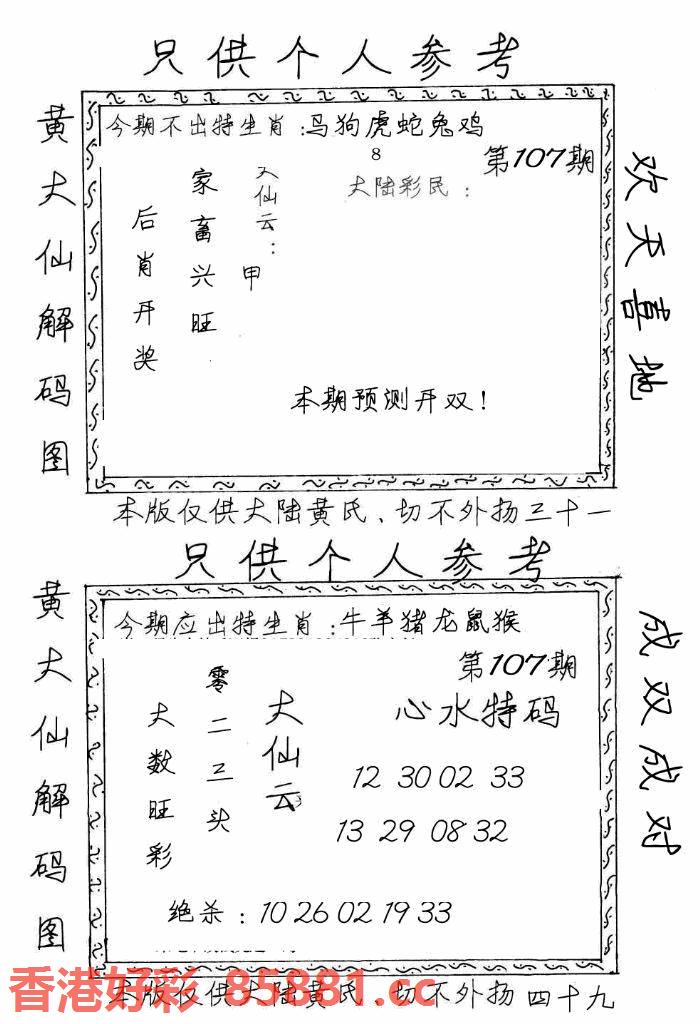 只供个人参考
今期不出特生肖:马狗虎蛇兔鸡
8
第107期
黄大仙解码图
后肖开奖
家畜兴旺
大仙云:
甲
大陆彩民:
欢天喜地
本期预测开双!
本版仅供大陆黄氏、切不外扬三十一
只供个人参考
今期应出特生肖:牛羊猪龙鼠猴
第107期
黄大仙解码图
大数旺彩
零二三头
大仙云
心水特码
12 30 02 33
13 29 08 32
成双成对
绝杀:10 26 02 19 33
香港好彩 85881.cc
本版仅供大陆黄氏、切不外扬四十九